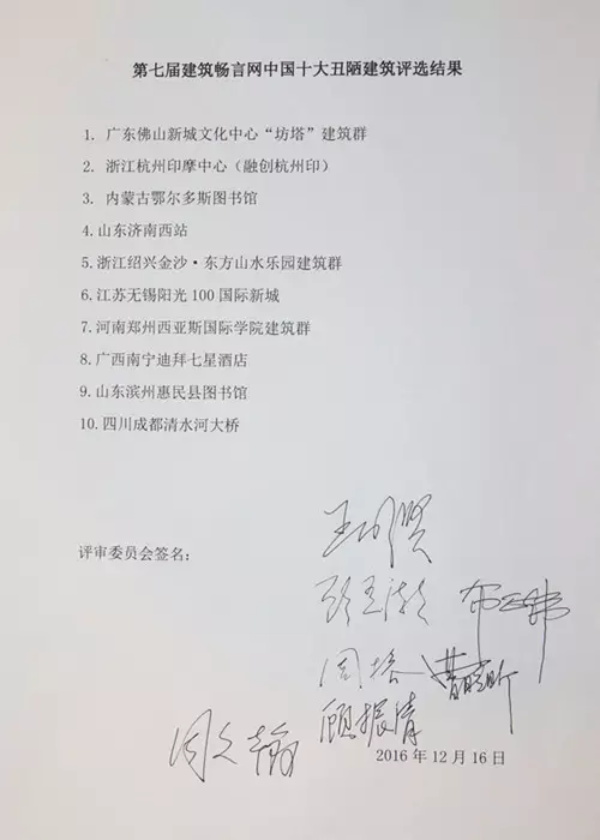 第七届建筑畅言网中国十大丑陋建筑评选结果
1. 广东佛山新城文化中心“坊塔”建筑群
2. 浙江杭州印摩中心（融创杭州印）
3. 内蒙古鄂尔多斯图书馆
4.山东济南西站
5.浙江绍兴金沙·东方山水乐园建筑群
6.江苏无锡阳光100国际新城
7.河南郑州西亚斯国际学院建筑群
8.广西南宁迪拜七星酒店
9.山东滨州惠民县图书馆
10.四川成都清水河大桥
评审委员会签名：
王明贤
周榕
顾振清
2016年12月16日